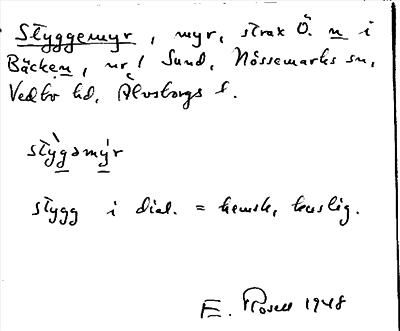 Styggemyr, myr, strax Ö. n i
Bäcken, nr 1 Sund, Nössemarks sn,
Vedbo hd, Älvsborgs l.
stỳgəmýr
stygg i dial. = hemsk, kuslig.
E. Rosell 1948